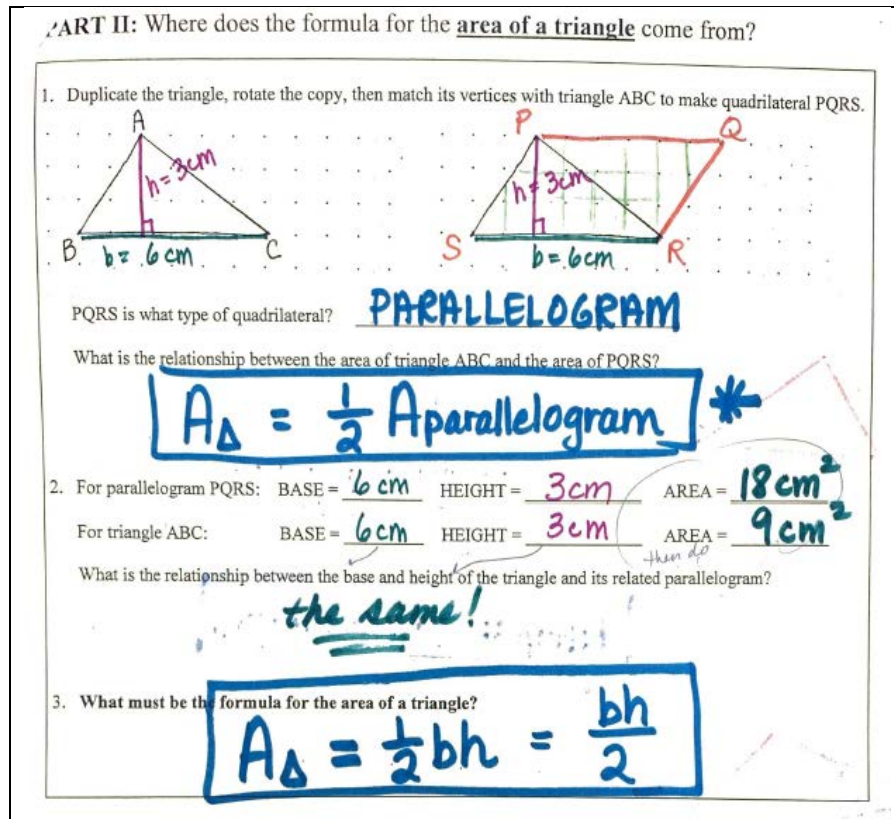 PART II: Where does the formula for the area of a triangle come from?
1. Duplicate the triangle, rotate the copy, then match its vertices with triangle ABC to make quadrilateral PQRS.
A P Q
h = 3cm h = 3cm
B b = 6cm C S b = 6cm R
PQRS is what type of quadrilateral? PARALLELOGRAM
What is the relationship between the area of triangle ABC and the area of PQRS?
A△ = 1/2 Aparallelogram *
2. For parallelogram PQRS: BASE = 6 cm HEIGHT = 3cm AREA = 18 cm²
For triangle ABC: BASE = 6cm HEIGHT = 3cm AREA = 9cm²
then do
What is the relationship between the base and height of the triangle and its related parallelogram?
the same!
3. What must be the formula for the area of a triangle?
A△ = 1/2 bh = bh/2